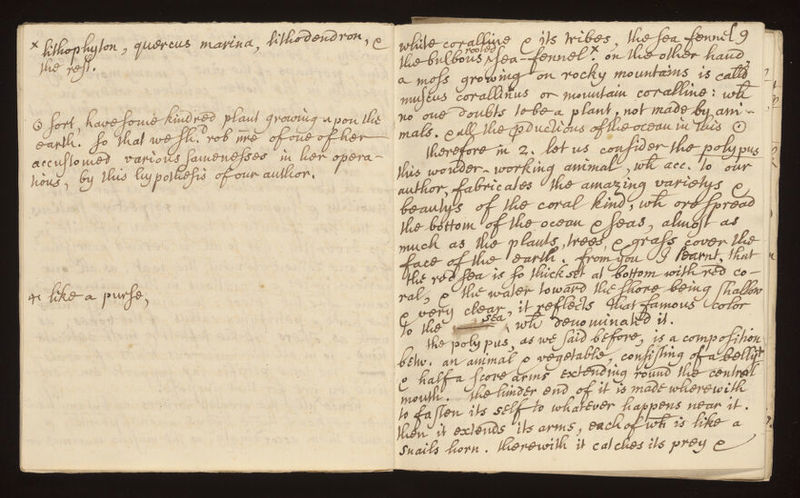 x lithophyton, quercus marina, lithodendron, &
the rest.
☉ sort, have some kindred plant growing upon the
earth. so that we shd. rob nre of one of her
accustomed various samenesses in her opera-
tions, by this hypothesis of our author.
like a purse,
white coralline & its tribes, the sea fennel
the bulbous rooted sea-fennel x on the other hand
a moss growing on rocky mountains is calld
muscus corallinus or mountain coralline: wh
no one doubts to be a plant, not made by ani-
mals. & all the productions of the ocean in this ☉
therefore in 2. let us consider the polypus
this wonder-working animal, wh acc. to our
author, fabricates the amazing varietys &
beautys of the coral kind, wh orespread
the bottom of the ocean & seas, almost as
much as the plants, trees, & grass cover the
face of the earth. from you I learnt, that
the red sea is so thick set at bottom with red co-
ral, & the water toward the shore being shallow
& very clear, it reflects that famous color
to the sea, wh denominated it.
the polypus, as we said before, is a composition
betw. an animal & vegetable, consisting of a belly
& half a score arms extending round the central
mouth. the hinder end of it is made wherewith
to fasten its self to whatever happens near it.
then it extends its arms, each of wh is like a
snails horn. therewith it catches its prey &